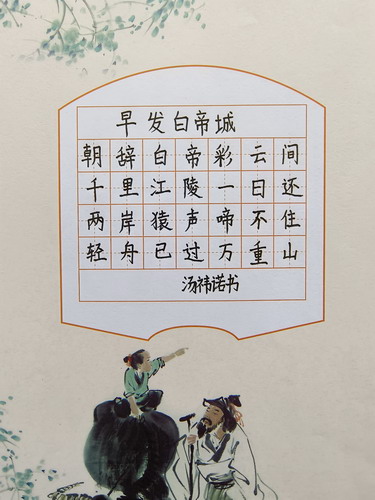 早发白帝城
朝辞白帝彩云间
千里江陵一日还
两岸猿声啼不住
轻舟已过万重山
汤祎诺书